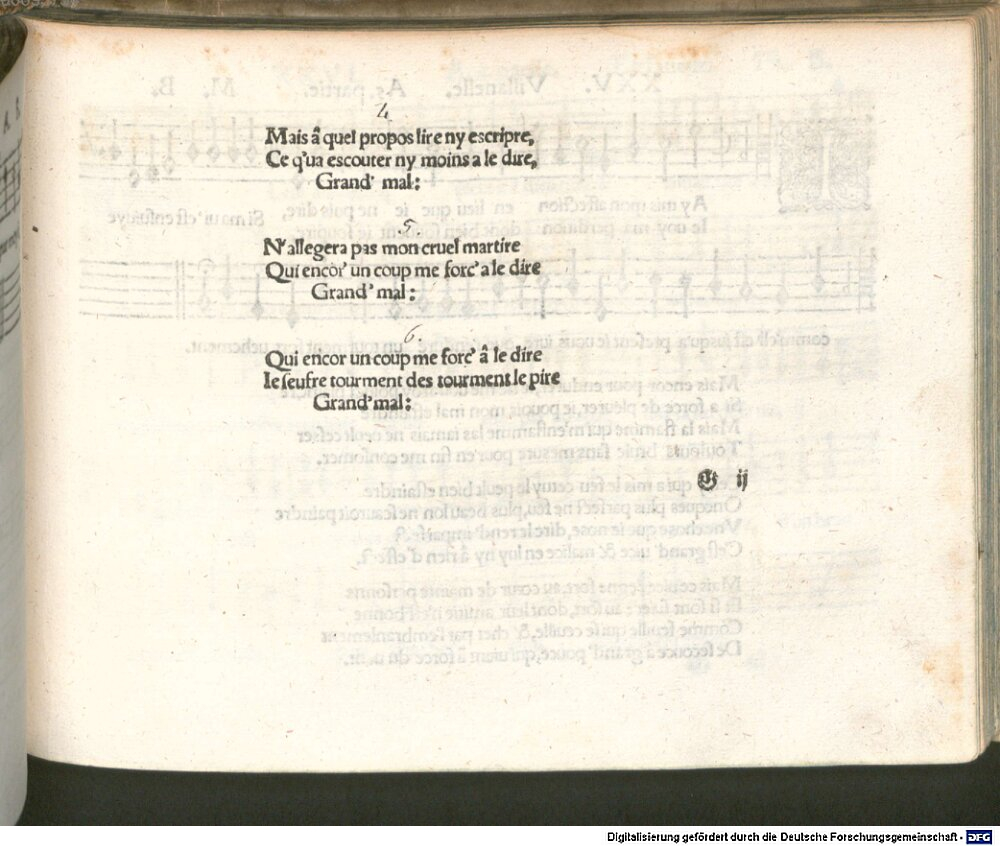 4
Mais â quel propos lire ny escripre,
Ce q'ua escouter ny moins a le dire,
Grand' mal:
5
N'allegera pas mon cruel martire
Qui encor' un coup me forc' a le dire
Grand' mal:
6
Qui encor un coup me forc' â le dire
Ie seufre tourment des tourment le pire
Grand' mal:
G ij
Digitalisierung gefördert durch die Deutsche Forschungsgemeinschaft - DFG